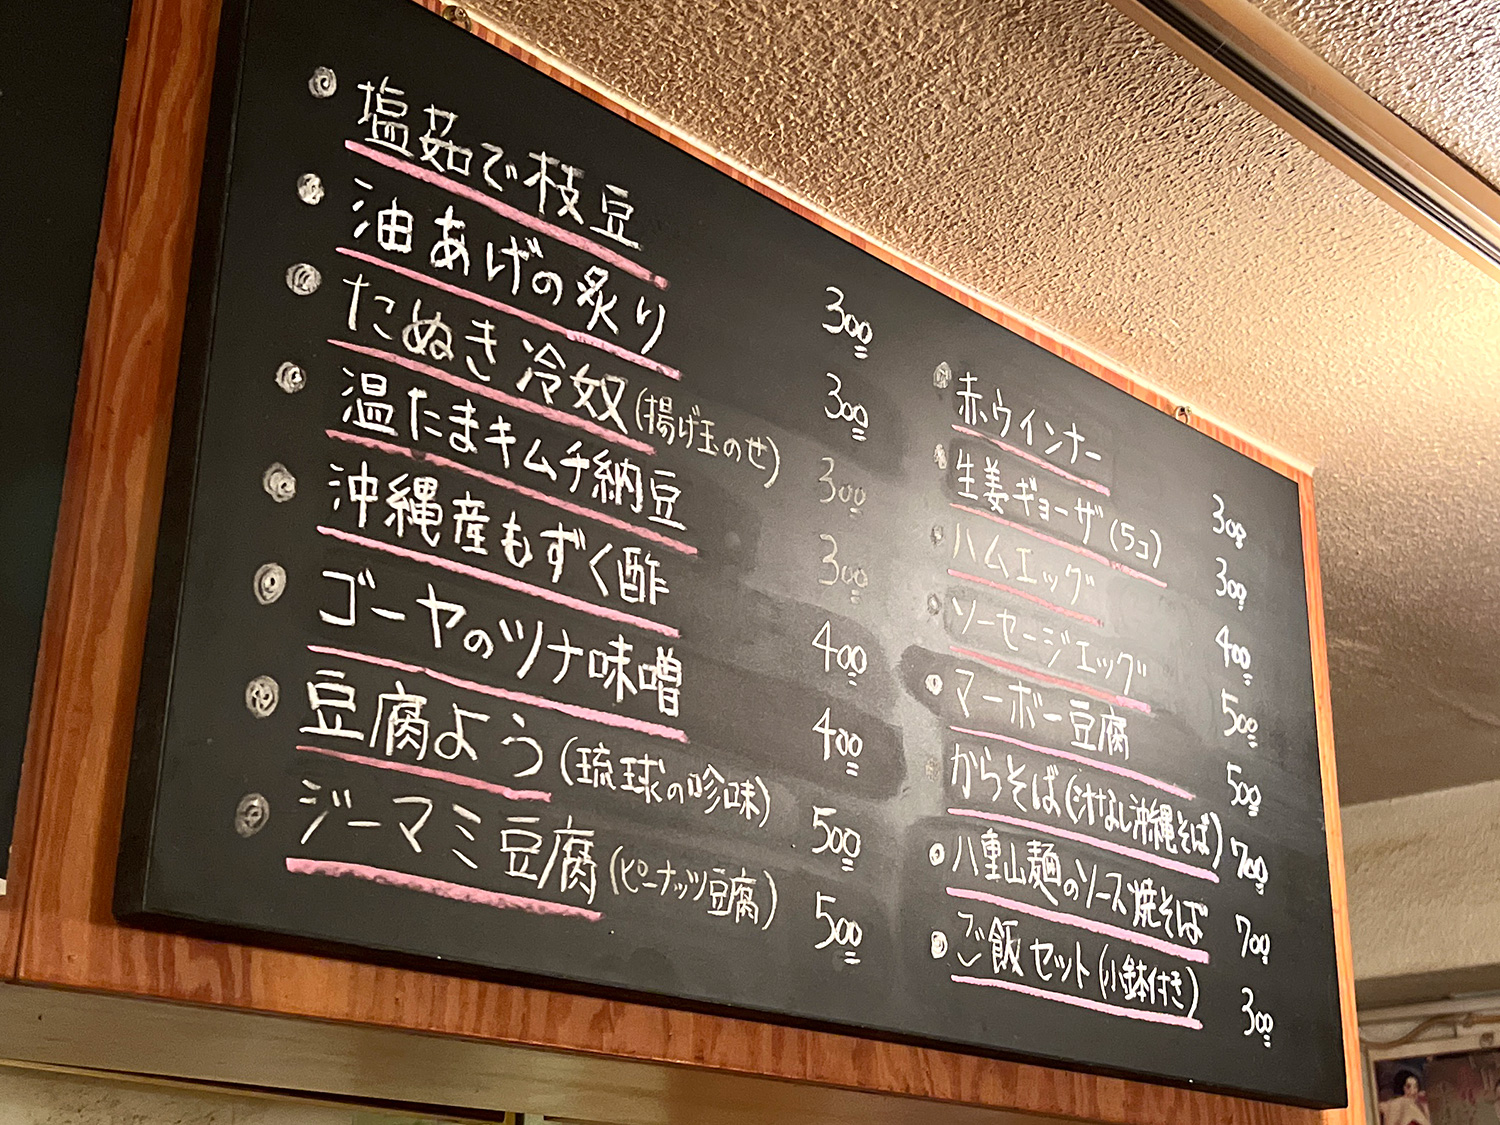 塩茹で枝豆 300
油あげの炙り 300
たぬき冷奴(揚げ玉のせ) 300
温たまキムチ納豆 300
沖縄産もずく酢 400
ゴーヤのツナ味噌 400
豆腐よう(琉球の珍味) 500
ジーマミ豆腐(ピーナッツ豆腐) 500
赤ウインナー 300
生姜ギョーザ(5コ) 300
ハムエッグ 400
ソーセージエッグ 500
マーボー豆腐 500
からそば(汁なし沖縄そば) 700
八重山麺のソース焼そば 700
ご飯セット(小鉢付き) 300